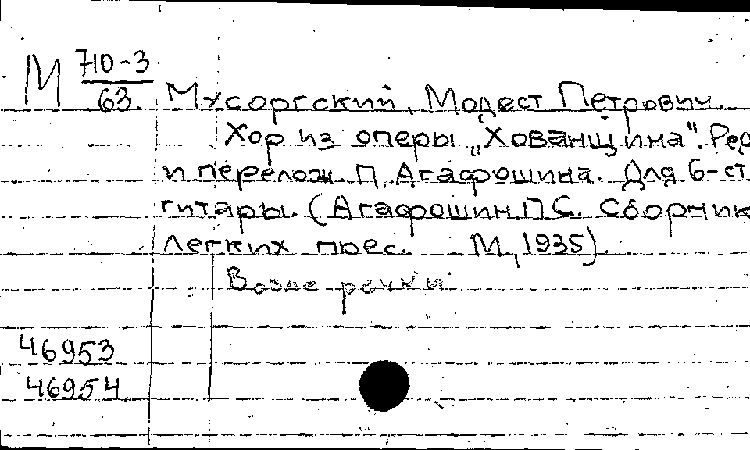 М 710-3
63.
Мусоргский, Модест Петрович.
Хор из оперы „Хованщина". Ред
и перелож. П. Агафошина. Для 6-ст
гитары. (Агафошин П С. Сборник
легких пьес. М, 1935).
Возле речки
46953
46954